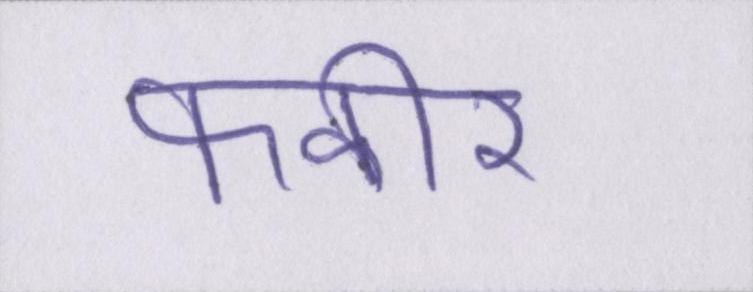 कबीर